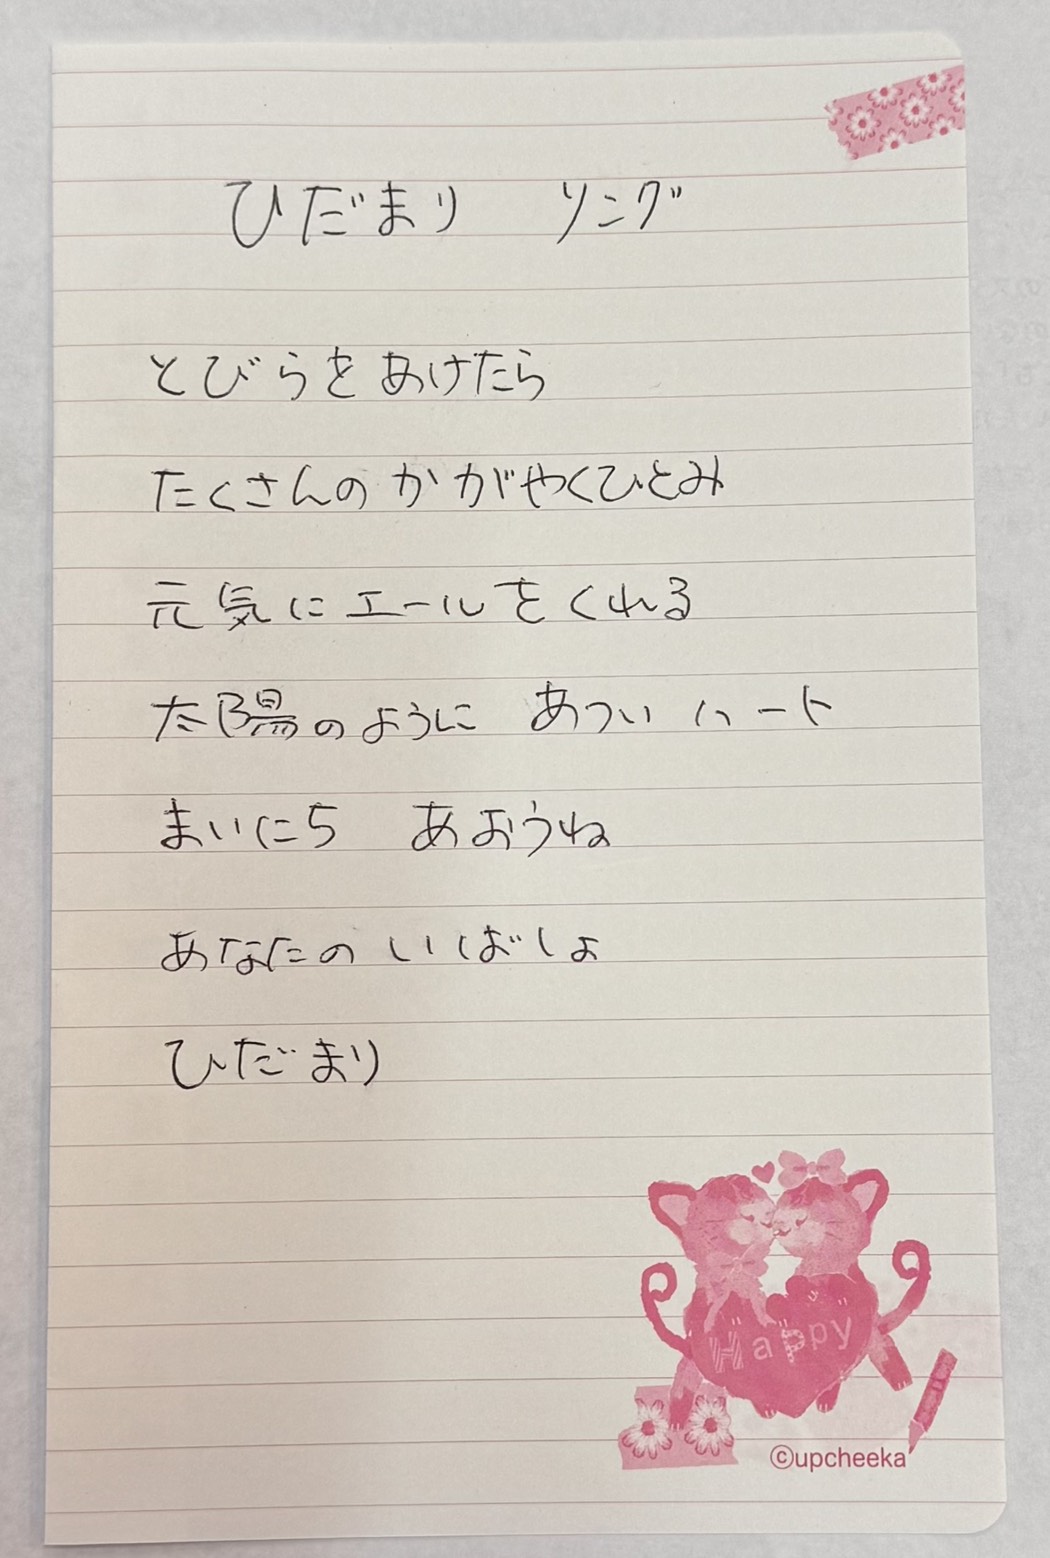 ひだまり ソング
とびらをあけたら
たくさんの かがやくひとみ
元気にエールをくれる
太陽のように あつい ハート
まいにち あおうね
あなたの いばしょ
ひだまり
Happy
©upcheeka